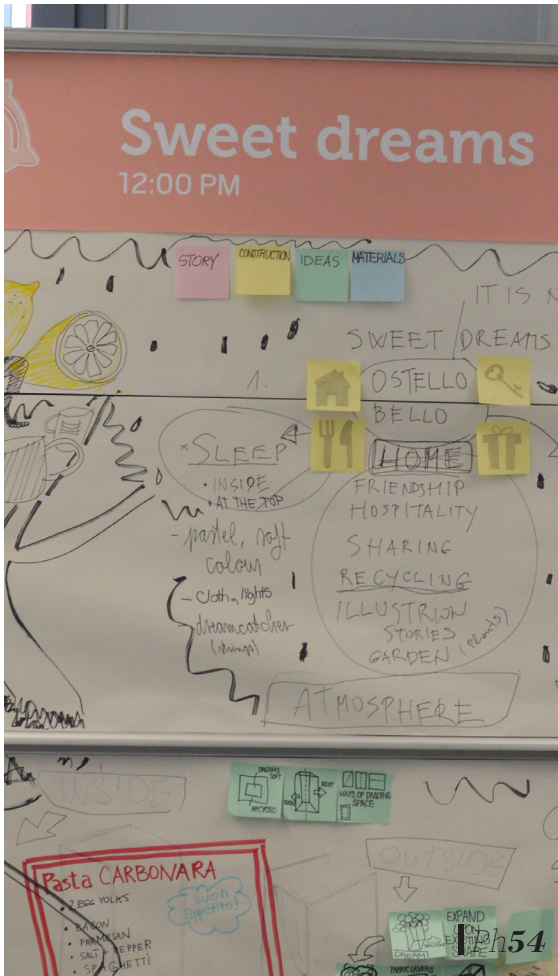 Sweet dreams
12:00 PM
STORY
CONSTRUCTION
IDEAS
MATERIALS
IT IS
SWEET DREAMS
1.
OSTELLO
BELLO
HOME
FRIENDSHIP
HOSPITALITY
SHARING
RECYCLING
ILLUSTRION
STORIES
GARDEN (PLANTS)
SLEEP
• INSIDE
• AT THE TOP
- pastel, soft
colour
- Cloth, lights
dreamcatcher
(strings)
ATMOSPHERE
INSIDE
DREAMS
SOFT
RECYCLED
ROOF
WAYS OF DIVIDING
SPACE
Pasta CARBONARA
• 2 EGG YOLKS
• BACON
• PARMESAN
• SALT + PEPPER
• SPAGHETTI
buon
appetito!
OUTSIDE
DREAM
EXPAND
EXISTING
SHAPE
FABRIC LAYERS
54